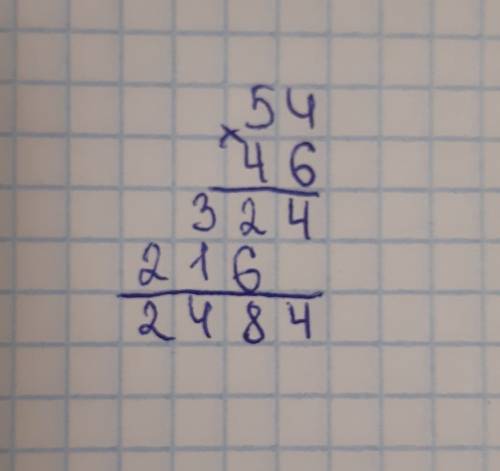 54
×
46
324
216
2484